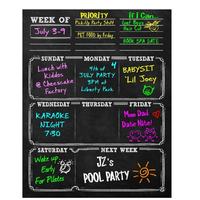 WEEK OF
PRIORITY
If I Can..
July 3-9
Pick-Up Party Stuff
Lost Boys
Hair Cut
PET FOOD by Friday
BOOK SPA DATE
SUNDAY
MONDAY
TUESDAY
Lunch with
Kiddos
@ Cheesecake
Factory
4th of
JULY PARTY
3PM at
Liberty Park
BABYSIT
'Lil Joey
WEDNESDAY
THURSDAY
FRIDAY
KARAOKE
NIGHT
7:30
Mom Dad
Date Nite!
SATURDAY
NEXT WEEK
Wake up
Early
For Pilates
JZ's
POOL PARTY